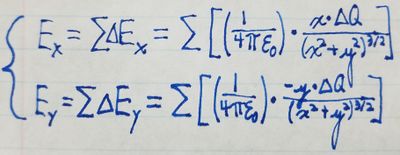 E_x = ΣΔE_x = Σ[(1/4πε₀)·x·ΔQ/(x²+y²)^{3/2}]
E_y = ΣΔE_y = Σ[(1/4πε₀)·-y·ΔQ/(x²+y²)^{3/2}]